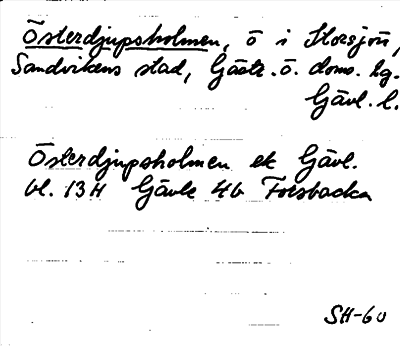 Österdjupsholmen, ö i Storsjön,
Sandvikens stad, Gästr. ö. doms. lg.
Gävl. l.
Österdjupsholmen ek Gävl.
bl. 13H Gävle 4b Forsbacka
SH-60